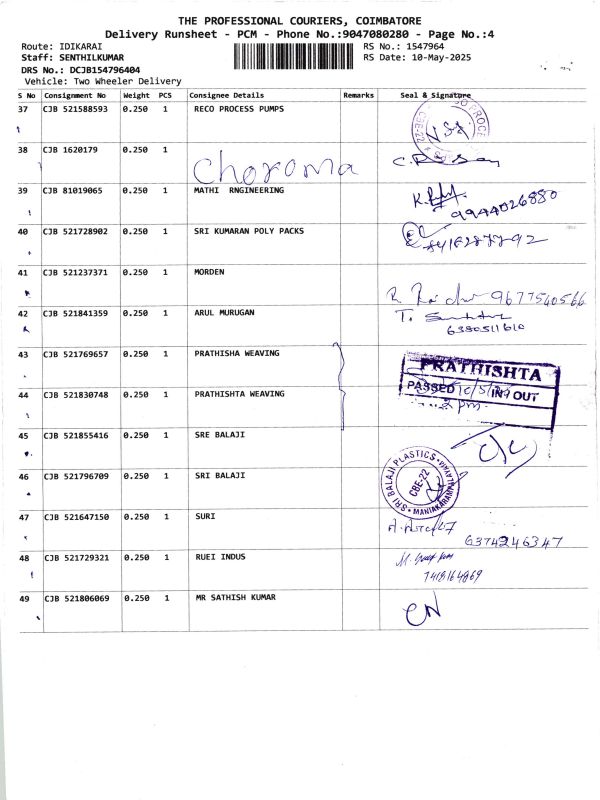 THE PROFESSIONAL COURIERS, COIMBATORE
Delivery Runsheet - PCM - Phone No.:9047080280 - Page No.:4
Route: IDIKARAI
RS No.: 1547964
Staff: SENTHILKUMAR
RS Date: 10-May-2025
DRS No.: DCJB154796404
Vehicle: Two Wheeler Delivery
S No Consignment No Weight PCS Consignee Details Remarks Seal & Signature
37 CJB 521588593 0.250 1 RECO PROCESS PUMPS
CBE-22
38 CJB 1620179 0.250 1 Choroma
39 CJB 81019065 0.250 1 MATHI RNGINEERING
9944026880
40 CJB 521728902 0.250 1 SRI KUMARAN POLY PACKS
41 CJB 521237371 0.250 1 MORDEN
9677540566
42 CJB 521841359 0.250 1 ARUL MURUGAN
6380511610
43 CJB 521769657 0.250 1 PRATHISHA WEAVING
PRATHISHTA
PASSED IN OUT
44 CJB 521830748 0.250 1 PRATHISHTA WEAVING
2 pm
45 CJB 521855416 0.250 1 SRE BALAJI
46 CJB 521796709 0.250 1 SRI BALAJI
SRI BALAJI PLASTICS
CBE-22
47 CJB 521647150 0.250 1 SURI
6374246347
48 CJB 521729321 0.250 1 RUEI INDUS
7418164869
49 CJB 521806069 0.250 1 MR SATHISH KUMAR